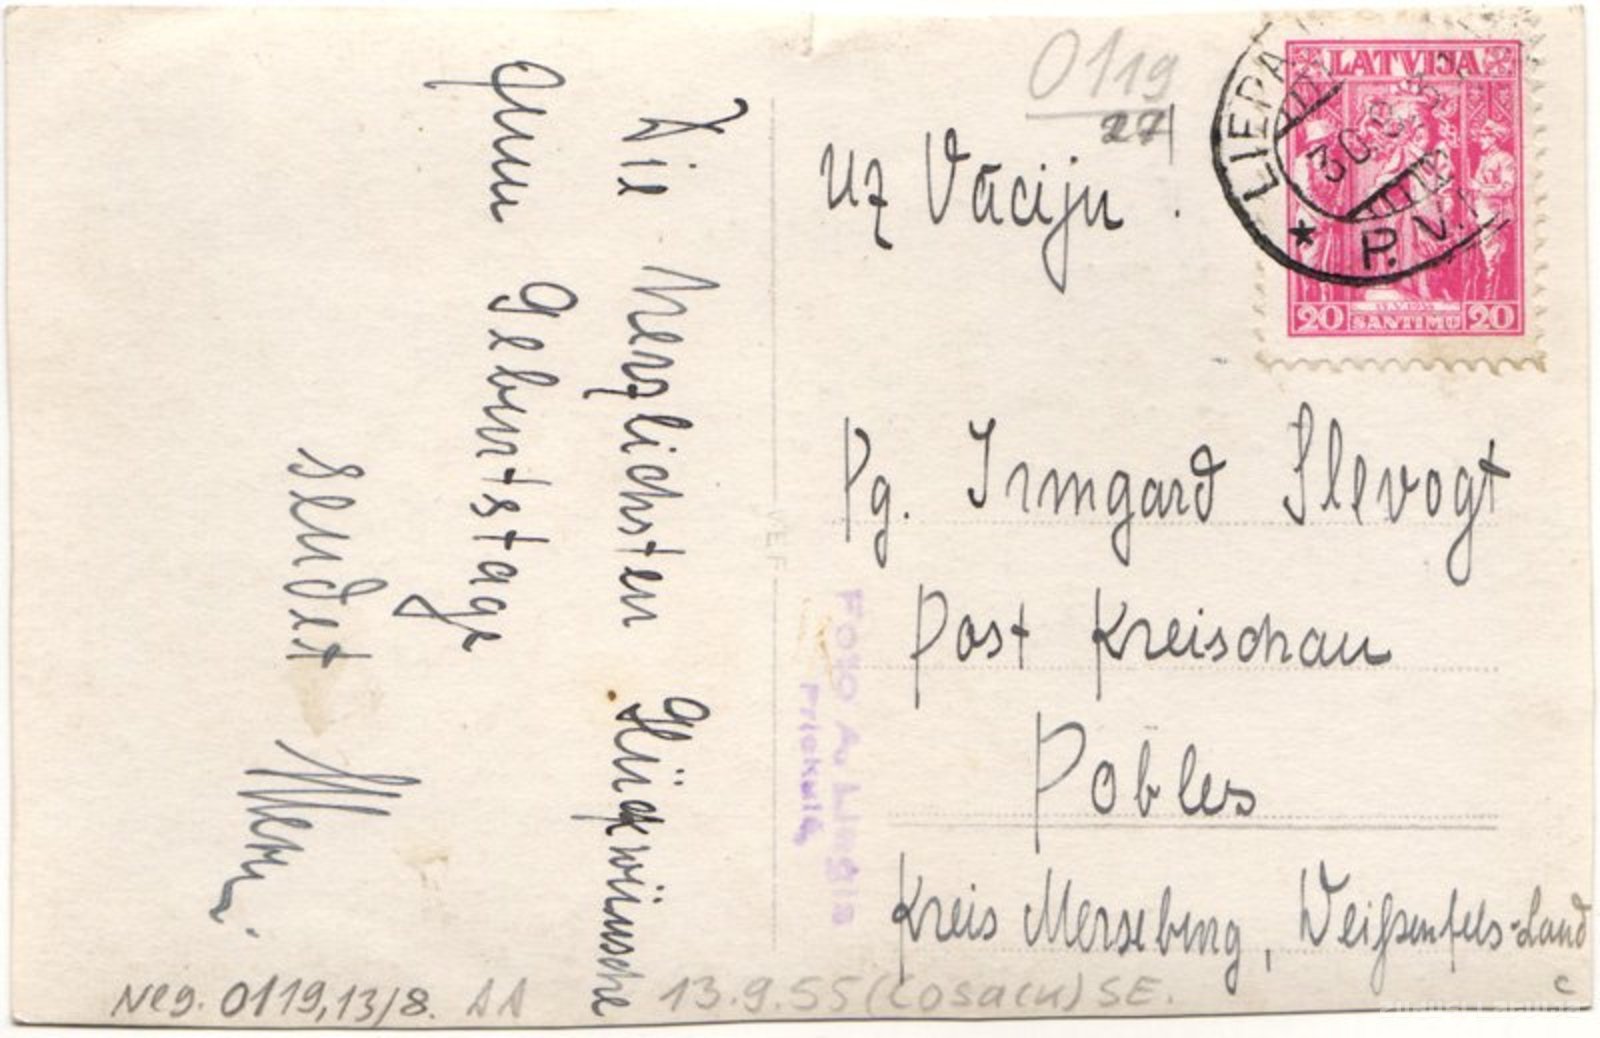 Die herzlichsten Glückwünsche
zum Geburtstage
sendet
0119
27
Uz Vāciju.
LATVIJA
20 SANTIMU 20
LIEPĀJA
30.
P.V.
Pg. Irmgard Slevogt
Post Kreischau
Pobles
Kreis Merseburg, Weißenfels-Land
VEF
Foto A. Lingis
Priekulē
Neg. 0119,13/8. AA 13.9.55 (Cosacu) SE.
c
zudusilatvija